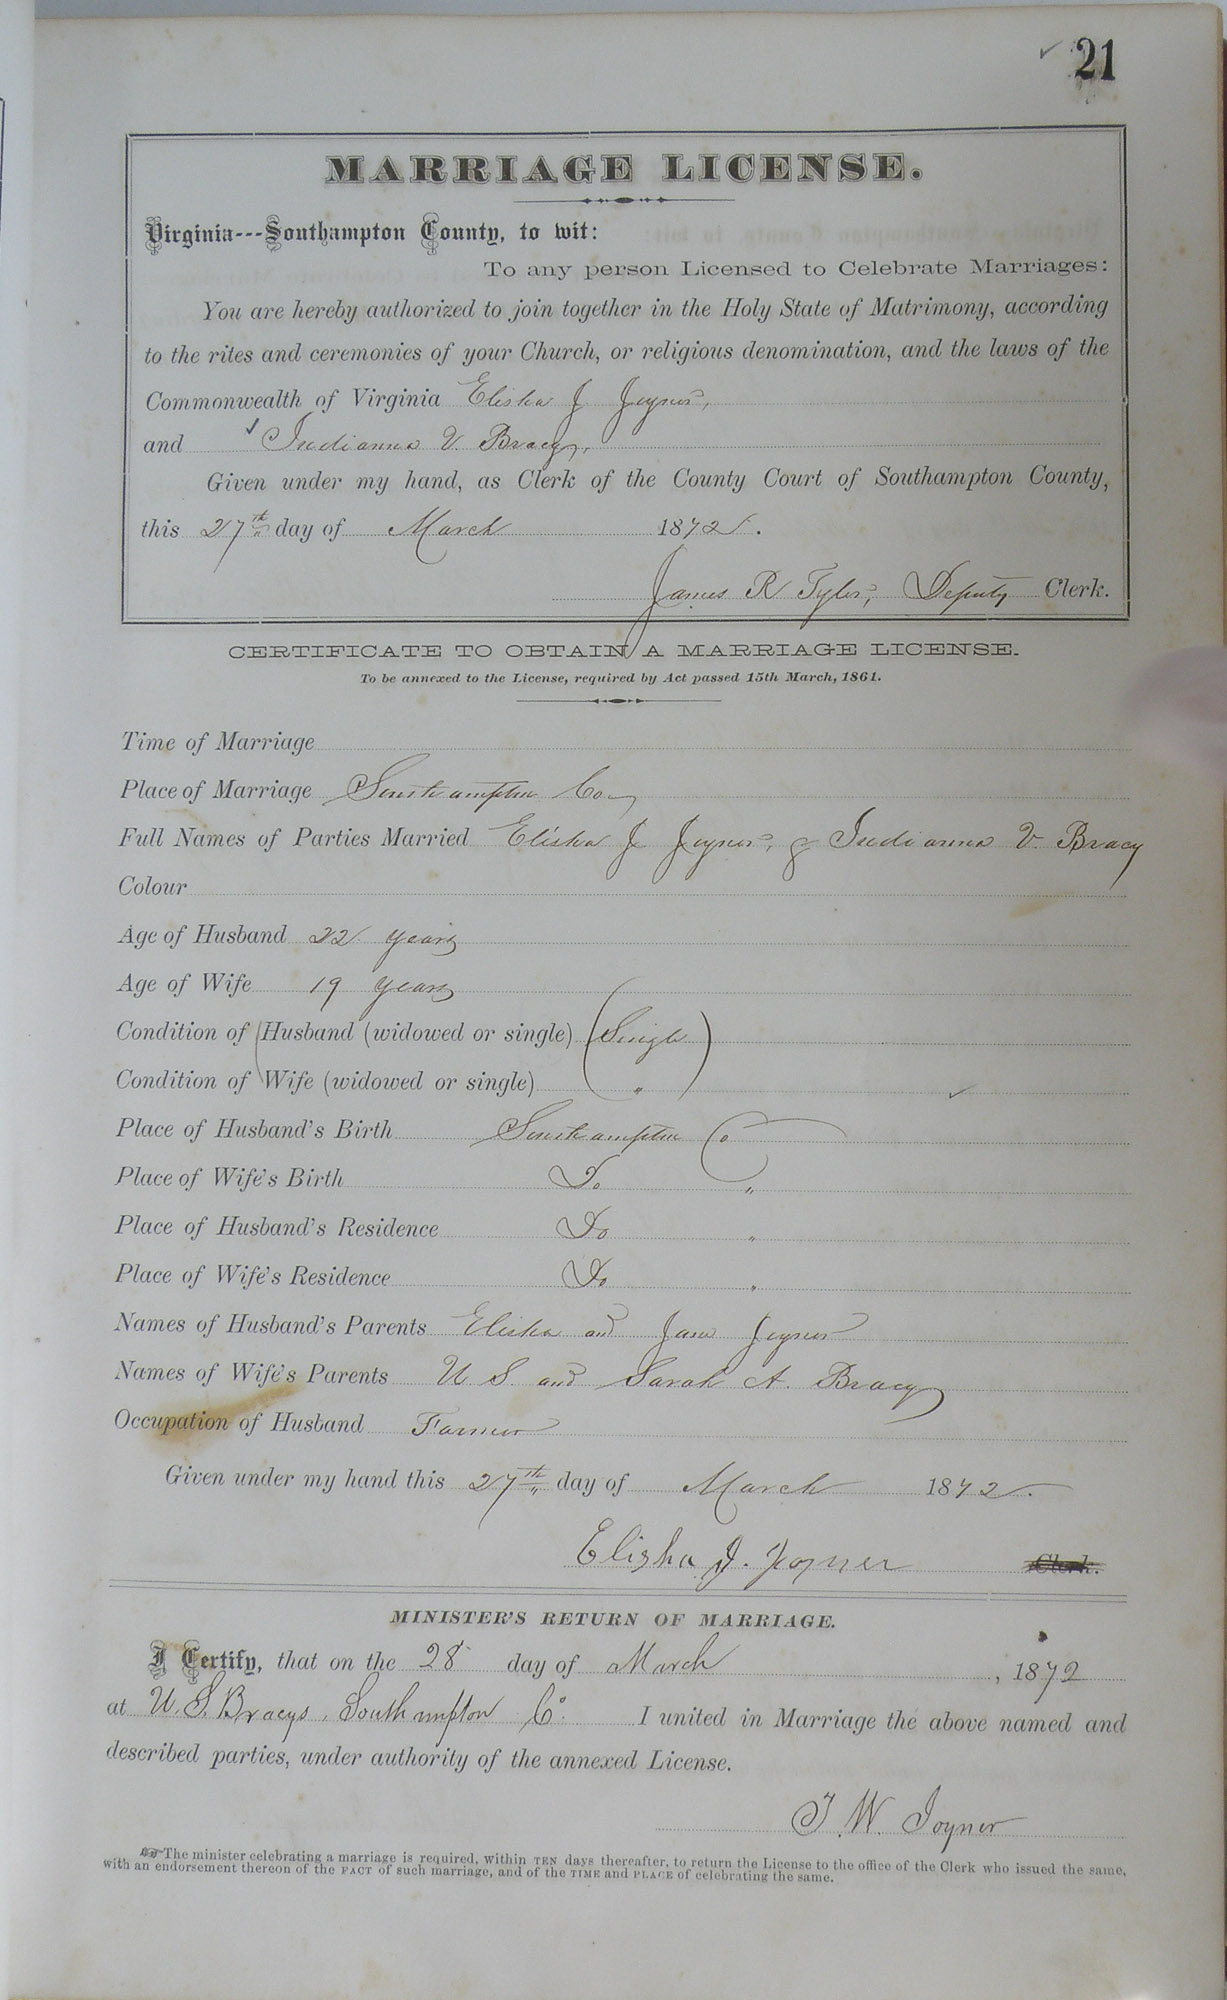 21
MARRIAGE LICENSE.
Virginia---Southampton County, to wit:
To any person Licensed to Celebrate Marriages:
You are hereby authorized to join together in the Holy State of Matrimony, according
to the rites and ceremonies of your Church, or religious denomination, and the laws of the
Commonwealth of Virginia Elisha J Joyner,
and Indianna V. Bracy,
Given under my hand, as Clerk of the County Court of Southampton County,
this 27th day of March 1872.
James R Tyler, Deputy Clerk.
CERTIFICATE TO OBTAIN A MARRIAGE LICENSE.
To be annexed to the License, required by Act passed 15th March, 1861.
Time of Marriage
Place of Marriage Southampton Co
Full Names of Parties Married Elisha J Joyner, & Indianna V. Bracy
Colour
Age of Husband 22 years
Age of Wife 19 years
Condition of Husband (widowed or single) Single
Condition of Wife (widowed or single) "
Place of Husband's Birth Southampton Co
Place of Wife's Birth Do "
Place of Husband's Residence Do "
Place of Wife's Residence Do "
Names of Husband's Parents Elisha and Jane Joyner
Names of Wife's Parents U S and Sarah A. Bracy
Occupation of Husband Farmer
Given under my hand this 27th day of March 1872.
Elisha J. Joyner Clerk.
MINISTER'S RETURN OF MARRIAGE.
I Certify, that on the 28 day of March , 1872
at U. S. Bracys, Southampton Co. I united in Marriage the above named and
described parties, under authority of the annexed License.
J. W. Joyner
☞The minister celebrating a marriage is required, within TEN days thereafter, to return the License to the office of the Clerk who issued the same,
with an endorsement thereon of the FACT of such marriage, and of the TIME and PLACE of celebrating the same.